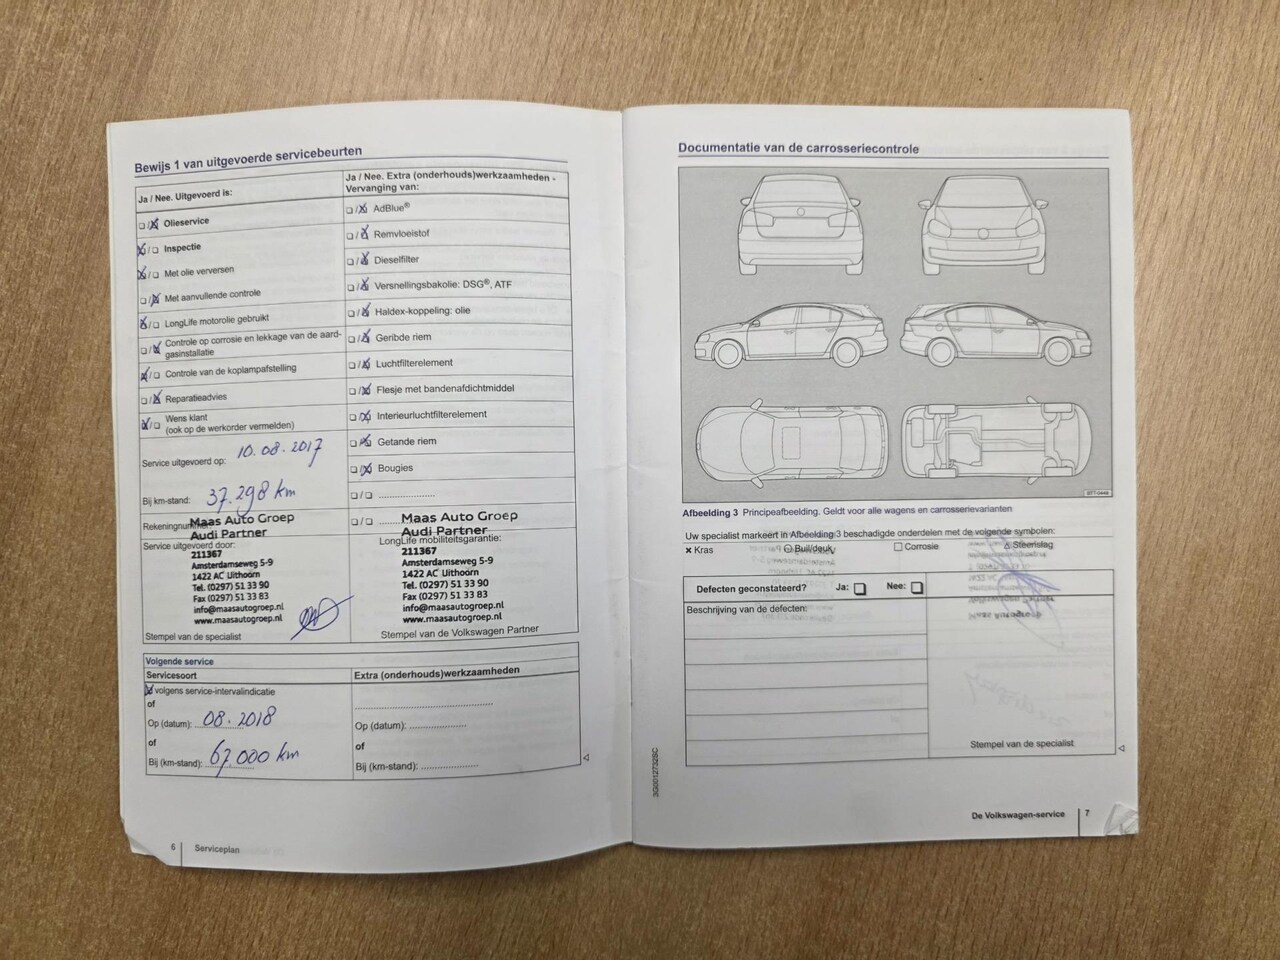 Bewijs 1 van uitgevoerde servicebeurten
Ja / Nee. Uitgevoerd is:
☐/☒ Olieservice
☒/☐ Inspectie
☒/☐ Met olie verversen
☐/☒ Met aanvullende controle
☒/☐ LongLife motorolie gebruikt
☐/☒ Controle op corrosie en lekkage van de aard-
gasinstallatie
☒/☐ Controle van de koplampafstelling
☐/☒ Reparatieadvies
☒/☐ Wens klant
(ook op de werkorder vermelden)
Service uitgevoerd op: 10.08.2017
Bij km-stand: 37.298 km
Ja / Nee. Extra (onderhouds)werkzaamheden -
Vervanging van:
☐/☒ AdBlue®
☐/☒ Remvloeistof
☐/☒ Dieselfilter
☐/☒ Versnellingsbakolie: DSG®, ATF
☐/☒ Haldex-koppeling: olie
☐/☒ Geribde riem
☐/☒ Luchtfilterelement
☐/☒ Flesje met bandenafdichtmiddel
☐/☒ Interieurluchtfilterelement
☐/☒ Getande riem
☐/☒ Bougies
☐/☐ .....................
☐/☐ .....................
Maas Auto Groep
Audi Partner
Service uitgevoerd door:
211367
Amsterdamseweg 5-9
1422 AC Uithoorn
Tel. (0297) 51 33 90
Fax (0297) 51 33 83
info@maasautogroep.nl
www.maasautogroep.nl
Stempel van de specialist
Maas Auto Groep
Audi Partner
LongLife mobiliteitsgarantie:
211367
Amsterdamseweg 5-9
1422 AC Uithoorn
Tel. (0297) 51 33 90
Fax (0297) 51 33 83
info@maasautogroep.nl
www.maasautogroep.nl
Stempel van de Volkswagen Partner
Volgende service
Servicesoort
☒ volgens service-intervalindicatie
of
Op (datum): 08.2018
of
Bij (km-stand): 67.000 km
Extra (onderhouds)werkzaamheden
Op (datum): .....................
of
Bij (km-stand): .....................
6
Serviceplan
Documentatie van de carrosseriecontrole
Afbeelding 3 Principeafbeelding. Geldt voor alle wagens en carrosserievarianten
Uw specialist markeert in Afbeelding 3 beschadigde onderdelen met de volgende symbolen:
× Kras
Buil/deuk
☐ Corrosie
Steenslag
Defecten geconstateerd? Ja: ☐ Nee: ☐
Beschrijving van de defecten:
Stempel van de specialist
3G0012732SC
De Volkswagen-service
7